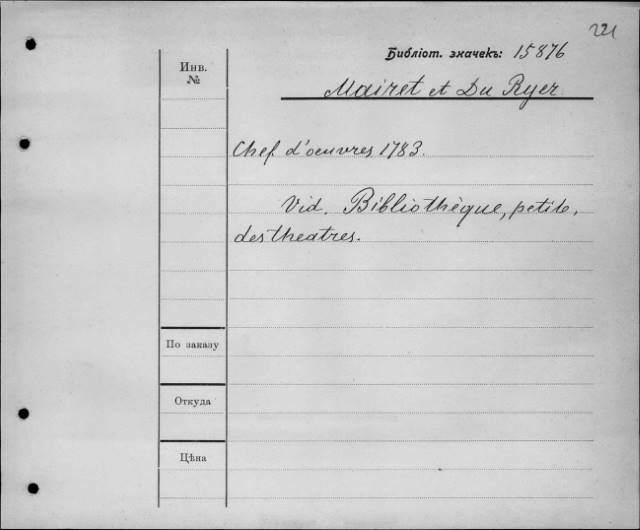 221
Библіот. значекъ: 15876
Инв. №
Mairet et Du Ryer
Chef d'oeuvres 1783.
Vid. Bibliothèque, petite,
des theatres.
По заказу
Откуда
Цѣна